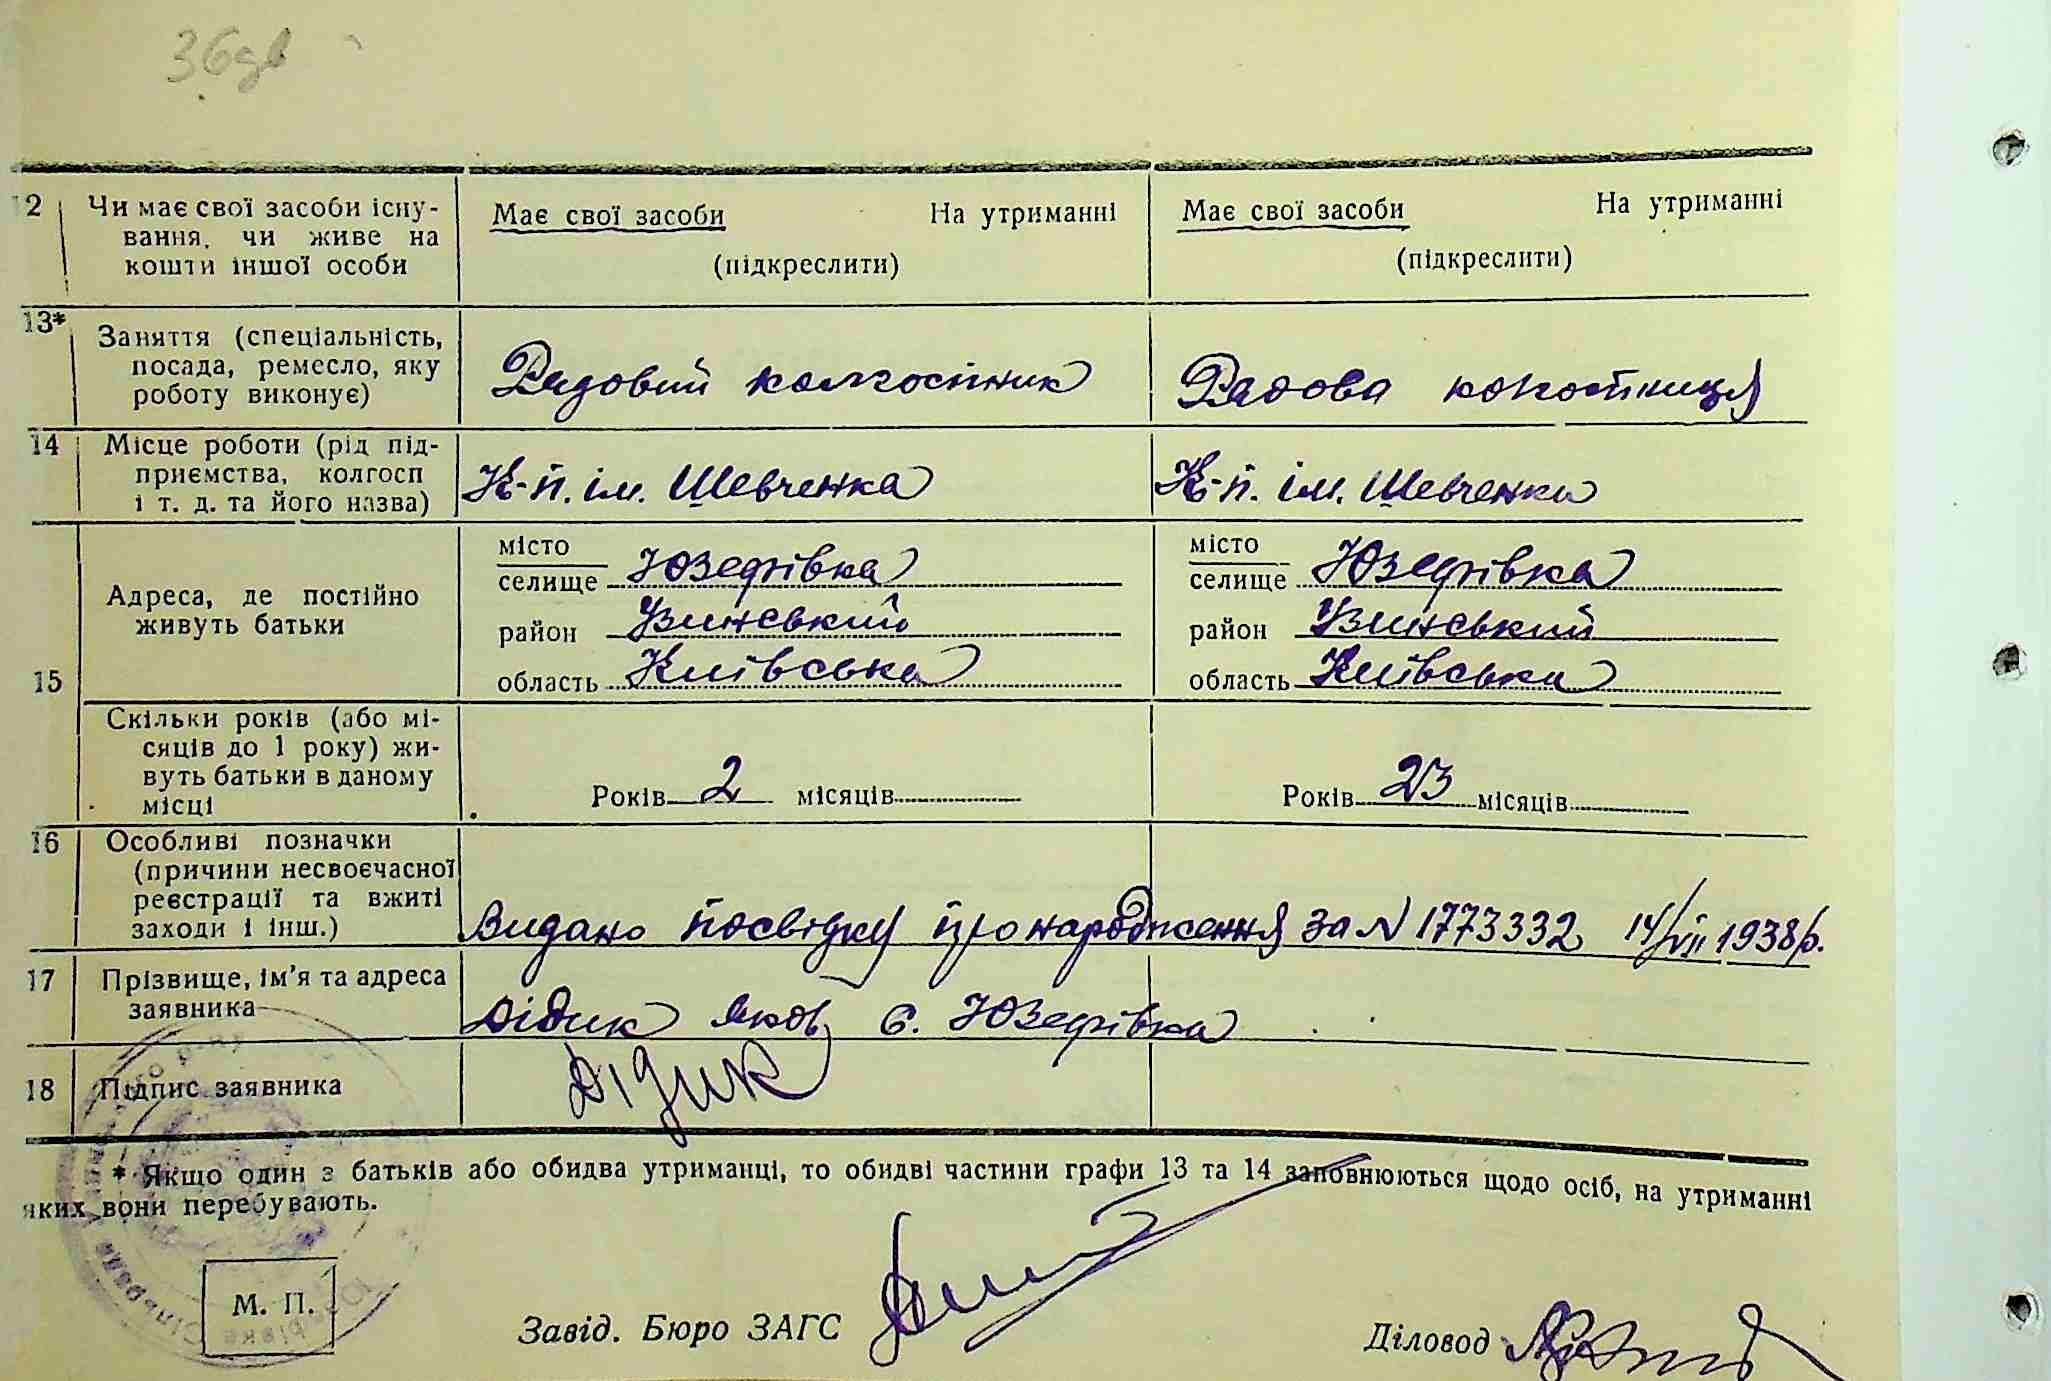 36дв
12 Чи має свої засоби існу- Має свої засоби На утриманні Має свої засоби На утриманні
вання, чи живе на
кошти іншої особи (підкреслити) (підкреслити)
13* Заняття (спеціальність,
посада, ремесло, яку Рядовий колгоспник Рядова колгоспниця
роботу виконує)
14 Місце роботи (рід під-
приємства, колгосп К-п. ім. Шевченка К-п. ім. Шевченка
і т. д. та його назва)
місто місто
Адреса, де постійно селище Юзефівка селище Юзефівка
живуть батьки район Узинський район Узинський
15 область Київська область Київська
Скільки років (або мі-
сяців до 1 року) жи-
вуть батьки в даному Років 2 місяців Років 23 місяців
місці
16 Особливі позначки
(причини несвоєчасної
реєстрації та вжиті
заходи і інш.) Видано посвідку про народження за N 1773332 14/VII 1938 р.
17 Прізвище, ім'я та адреса
заявника Дідик Яков, с. Юзефівка
18 Підпис заявника Дідик
* Якщо один з батьків або обидва утриманці, то обидві частини графи 13 та 14 заповнюються щодо осіб, на утриманні
яких вони перебувають.
М. П.
Завід. Бюро ЗАГС
Діловод